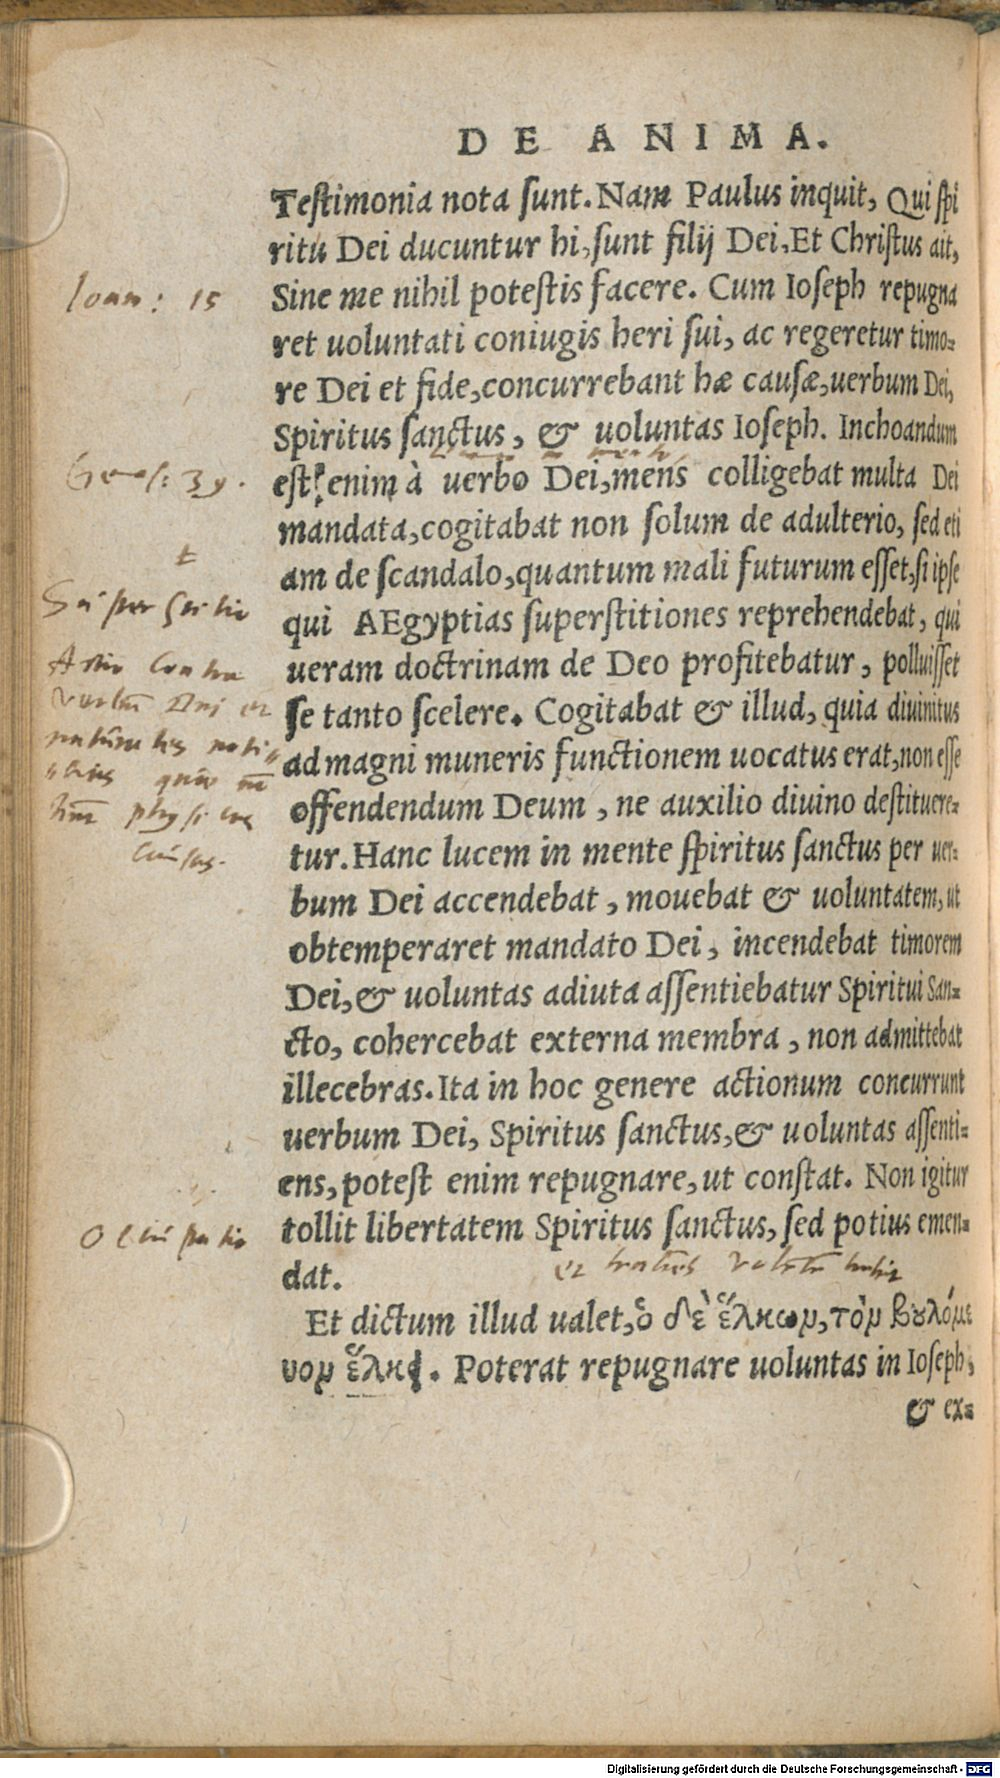 DE ANIMA.
Testimonia nota sunt. Nam Paulus inquit, Qui spi
ritu Dei ducuntur hi, sunt filij Dei, Et Christus ait,
Ioan: 15
Sine me nihil potestis facere. Cum Ioseph repugna
ret uoluntati coniugis heri sui, ac regeretur timo-
re Dei et fide, concurrebant hæ causæ, uerbum Dei,
Spiritus sanctus, & uoluntas Ioseph. Inchoandum
Genes: 39.
est enim à uerbo Dei, mens colligebat multa Dei
mandata, cogitabat non solum de adulterio, sed eti
am de scandalo, quantum mali futurum esset, si ipse
qui AEgyptias superstitiones reprehendebat, qui
ueram doctrinam de Deo profitebatur, polluisset
se tanto scelere. Cogitabat & illud, quia diuinitus
ad magni muneris functionem uocatus erat, non esse
offendendum Deum, ne auxilio diuino destituere-
tur. Hanc lucem in mente spiritus sanctus per uer-
bum Dei accendebat, mouebat & uoluntatem, ut
obtemperaret mandato Dei, incendebat timorem
Dei, & uoluntas adiuta assentiebatur Spiritui San-
cto, cohercebat externa membra, non admittebat
illecebras. Ita in hoc genere actionum concurrunt
uerbum Dei, Spiritus sanctus, & uoluntas assenti-
ens, potest enim repugnare, ut constat. Non igitur
Occupatio
tollit libertatem Spiritus sanctus, sed potius emen-
dat.
Et dictum illud ualet, ὁ δὲ ἕλκων, τὸν βουλόμε
νον ἕλκει. Poterat repugnare uoluntas in Ioseph,
& ex-
Digitalisierung gefördert durch die Deutsche Forschungsgemeinschaft - DFG